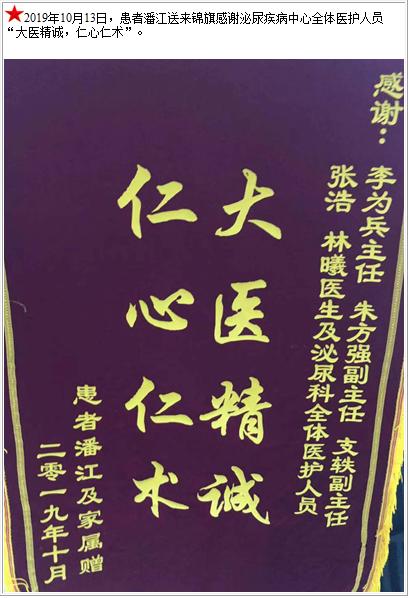 ★2019年10月13日，患者潘江送来锦旗感谢泌尿疾病中心全体医护人员
“大医精诚，仁心仁术”。
感谢：
李为兵主任 朱方强副主任 支轶副主任
张浩 林曦医生及泌尿科全体医护人员
大医精诚
仁心仁术
患者潘江及家属赠
二零一九年十月